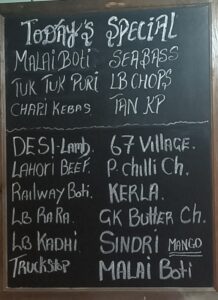 TODAY'S SPECIAL
MALAI BOTI SEABASS
TUK TUK PURI LB CHOPS
CHAPLI KEBAB TAN KP
DESI-LAMB. 67 VILLAGE.
LAHORI BEEF. P. CHILLI CH.
RAILWAY BOTI. KERLA.
LB RARA. GK BUTTER CH.
LB KADHI SINDRI MANGO
TRUCKSTOP MALAI BOTI